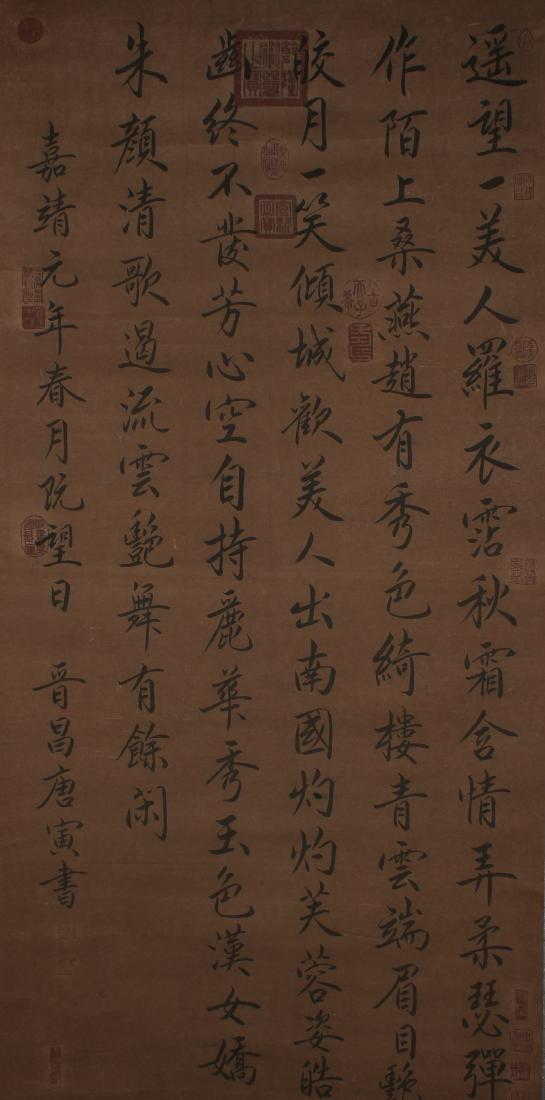 遥望一美人羅衣霑秋霜含情弄柔瑟彈
作陌上桑燕趙有秀色綺樓青雲端眉目艷
皎月一笑傾城歡美人出南國灼灼芙蓉姿皓
齒終不發芳心空自持麗華秀玉色漢女嬌
朱顏清歌遏流雲艷舞有餘閑
嘉靖元年春月既望日 晋昌唐寅書